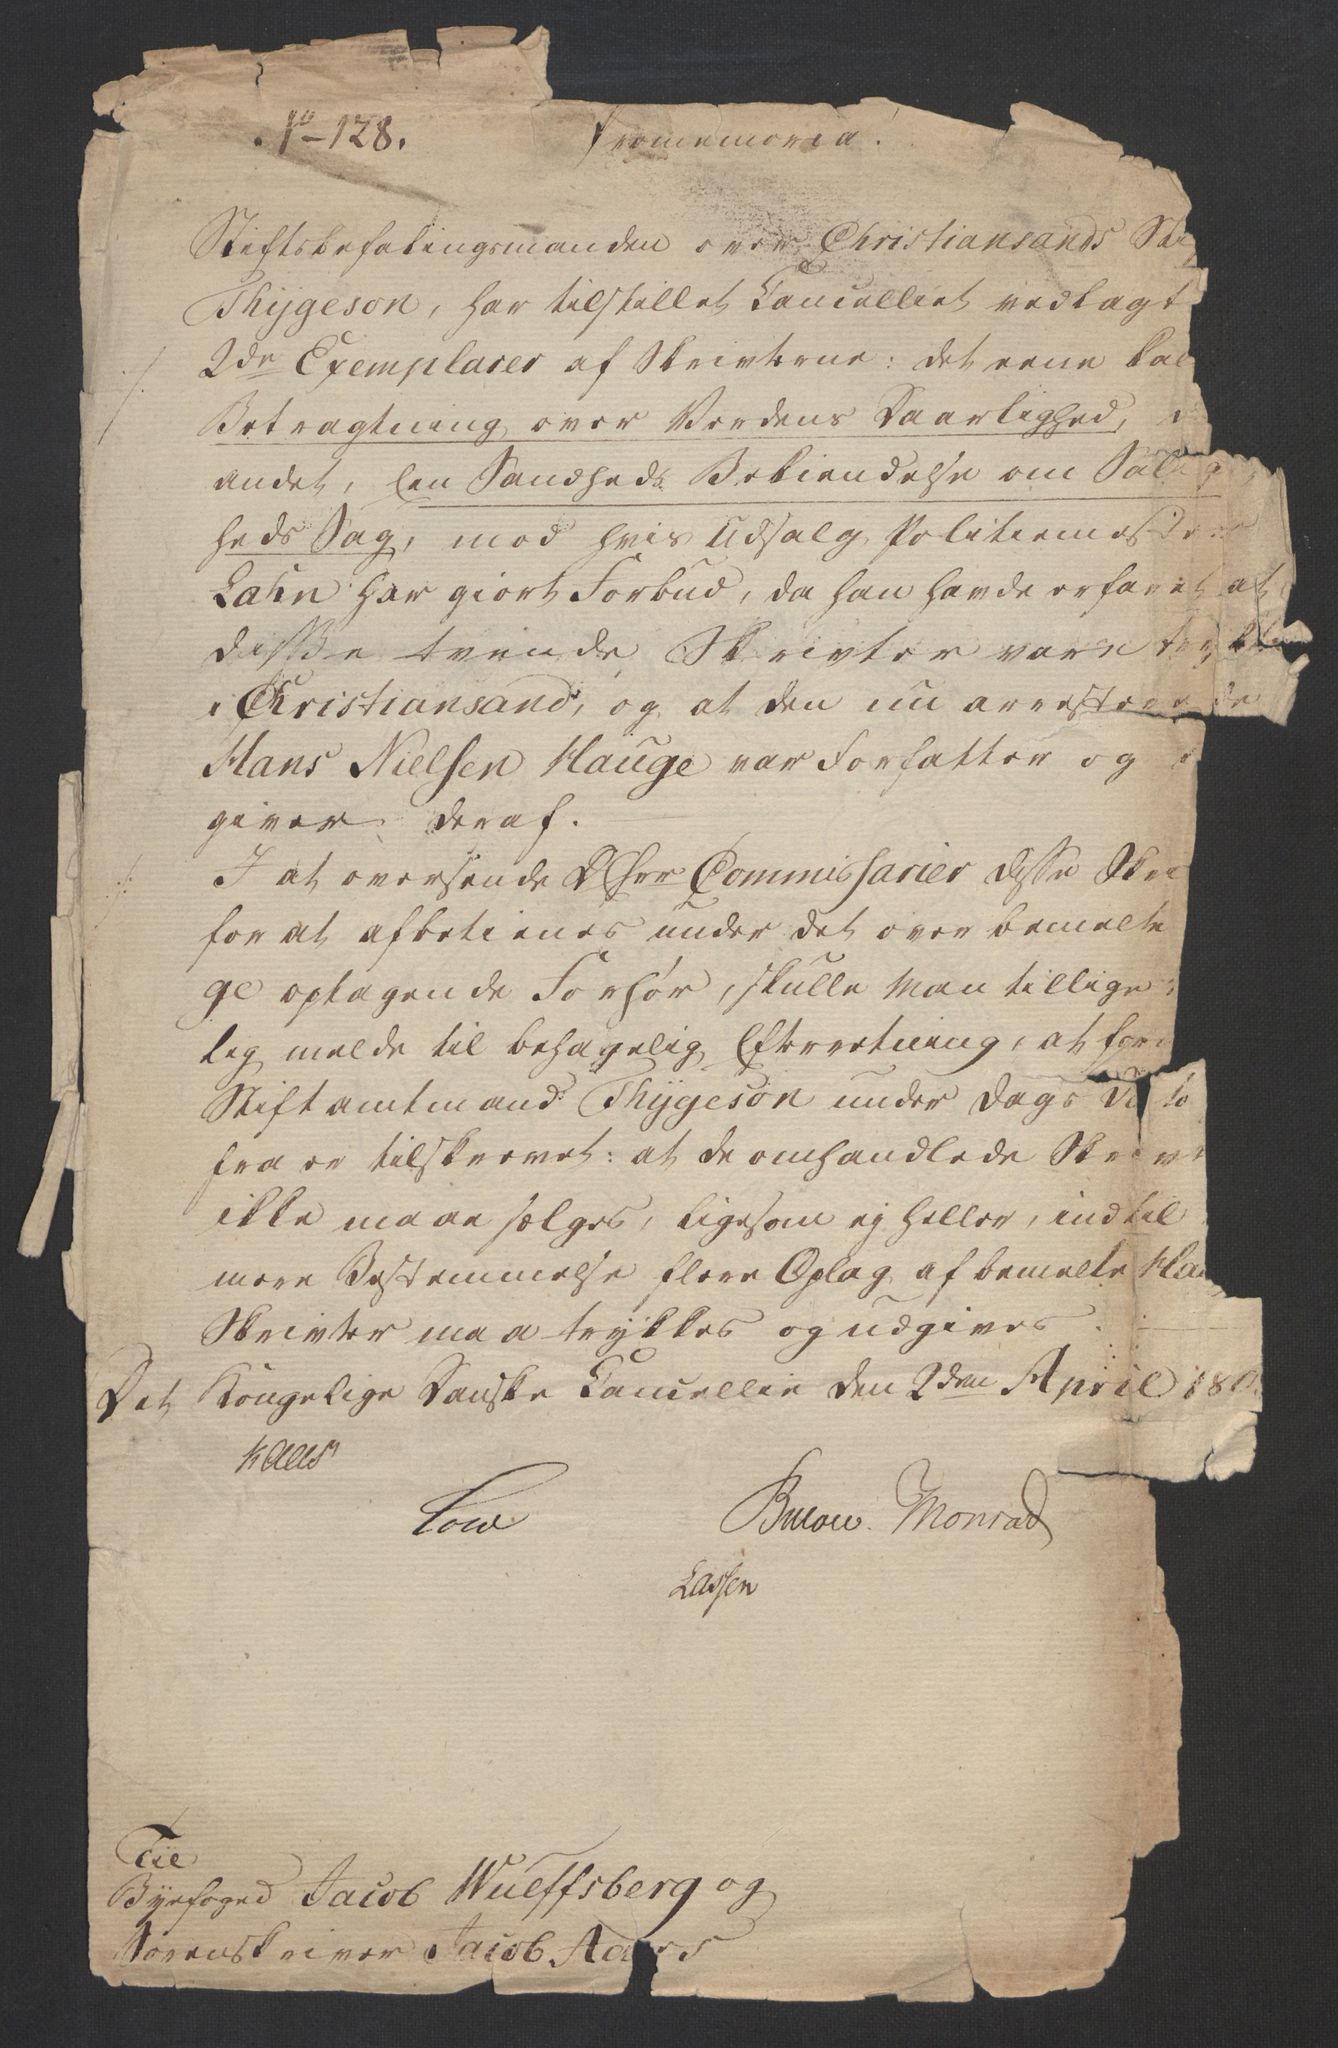 No 128.
Promemoria!
Stiftsbefalingsmanden over Christiansands Sti
Thygeson, har tilstillet Cancelliet vedlagt
2de Exemplarer af Skrivterne: det eene kal
Betragtning over Verdens Daarlighed, 
andet, Een Sandheds Bekiendelse om Salig
heds Sag, mod hvis Udsalg Politiemesteren
Lahn har giort Forbud, da han havde erfaret at
disse tvende Skrivter vare trykte
i Christiansand, og at den nu arresterede
Hans Nielsen Hauge var Forfatter og
giver deraf.
I at oversende D'Hrr Commissarier disse Skri
for at afbetienes under det over bemelte
ge optagende Forhør, skulle man tillige
lig melde til behagelig Efterretning, at for
Stiftamtmand Thygeson under Dags Dato
fra er tilskrevet: at de omhandlede Skrivt
ikke maae sælges, ligesom ej heller, indtil
mere Bestemmelse flere Oplag af bemelte Hau
Skrivter maa trykkes og udgives.
Det Kongelige Danske Cancellie den 2den April 180
Kaas
Cold
Bülow. Monrad
Lassen
Til
Byefoged Jacob Wulffsberg og
Sorenskriver Jacob Aars